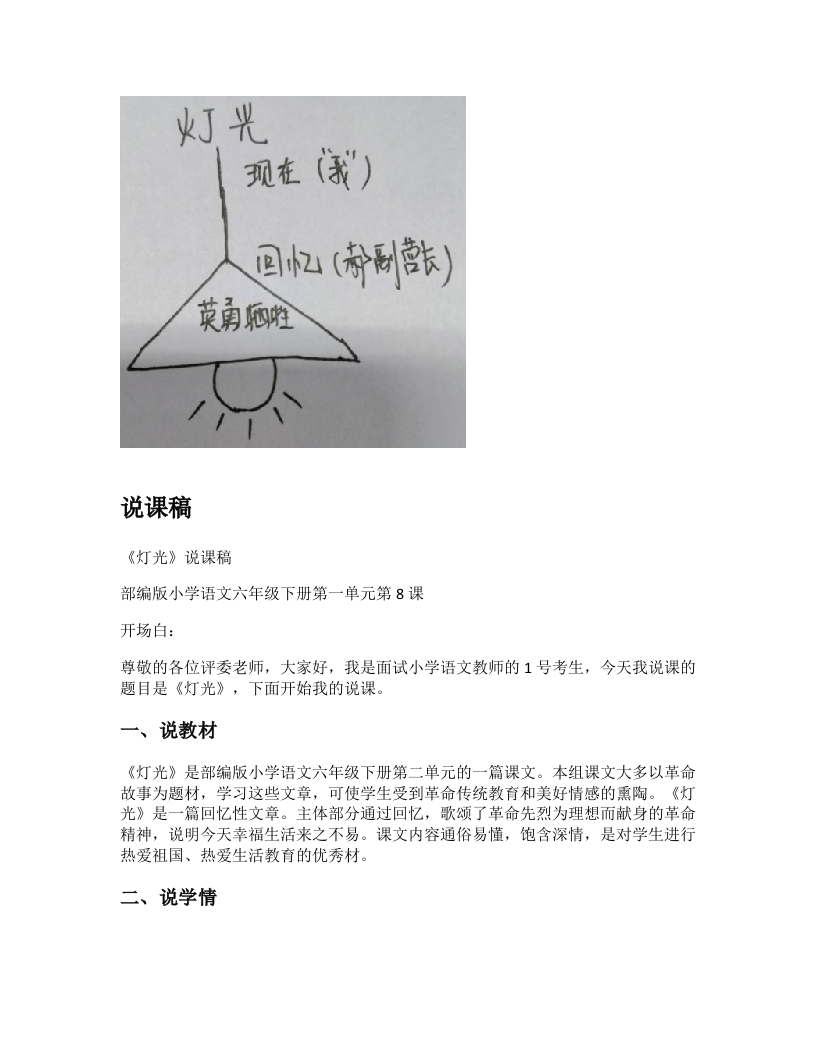 灯光
现在（“我”）
回忆（郝副营长）
英勇牺牲
说课稿
《灯光》说课稿
部编版小学语文六年级下册第一单元第 8 课
开场白：
尊敬的各位评委老师，大家好，我是面试小学语文教师的 1 号考生，今天我说课的
题目是《灯光》，下面开始我的说课。
一、说教材
《灯光》是部编版小学语文六年级下册第二单元的一篇课文。本组课文大多以革命
故事为题材，学习这些文章，可使学生受到革命传统教育和美好情感的熏陶。《灯
光》是一篇回忆性文章。主体部分通过回忆，歌颂了革命先烈为理想而献身的革命
精神，说明今天幸福生活来之不易。课文内容通俗易懂，饱含深情，是对学生进行
热爱祖国、热爱生活教育的优秀材。
二、说学情